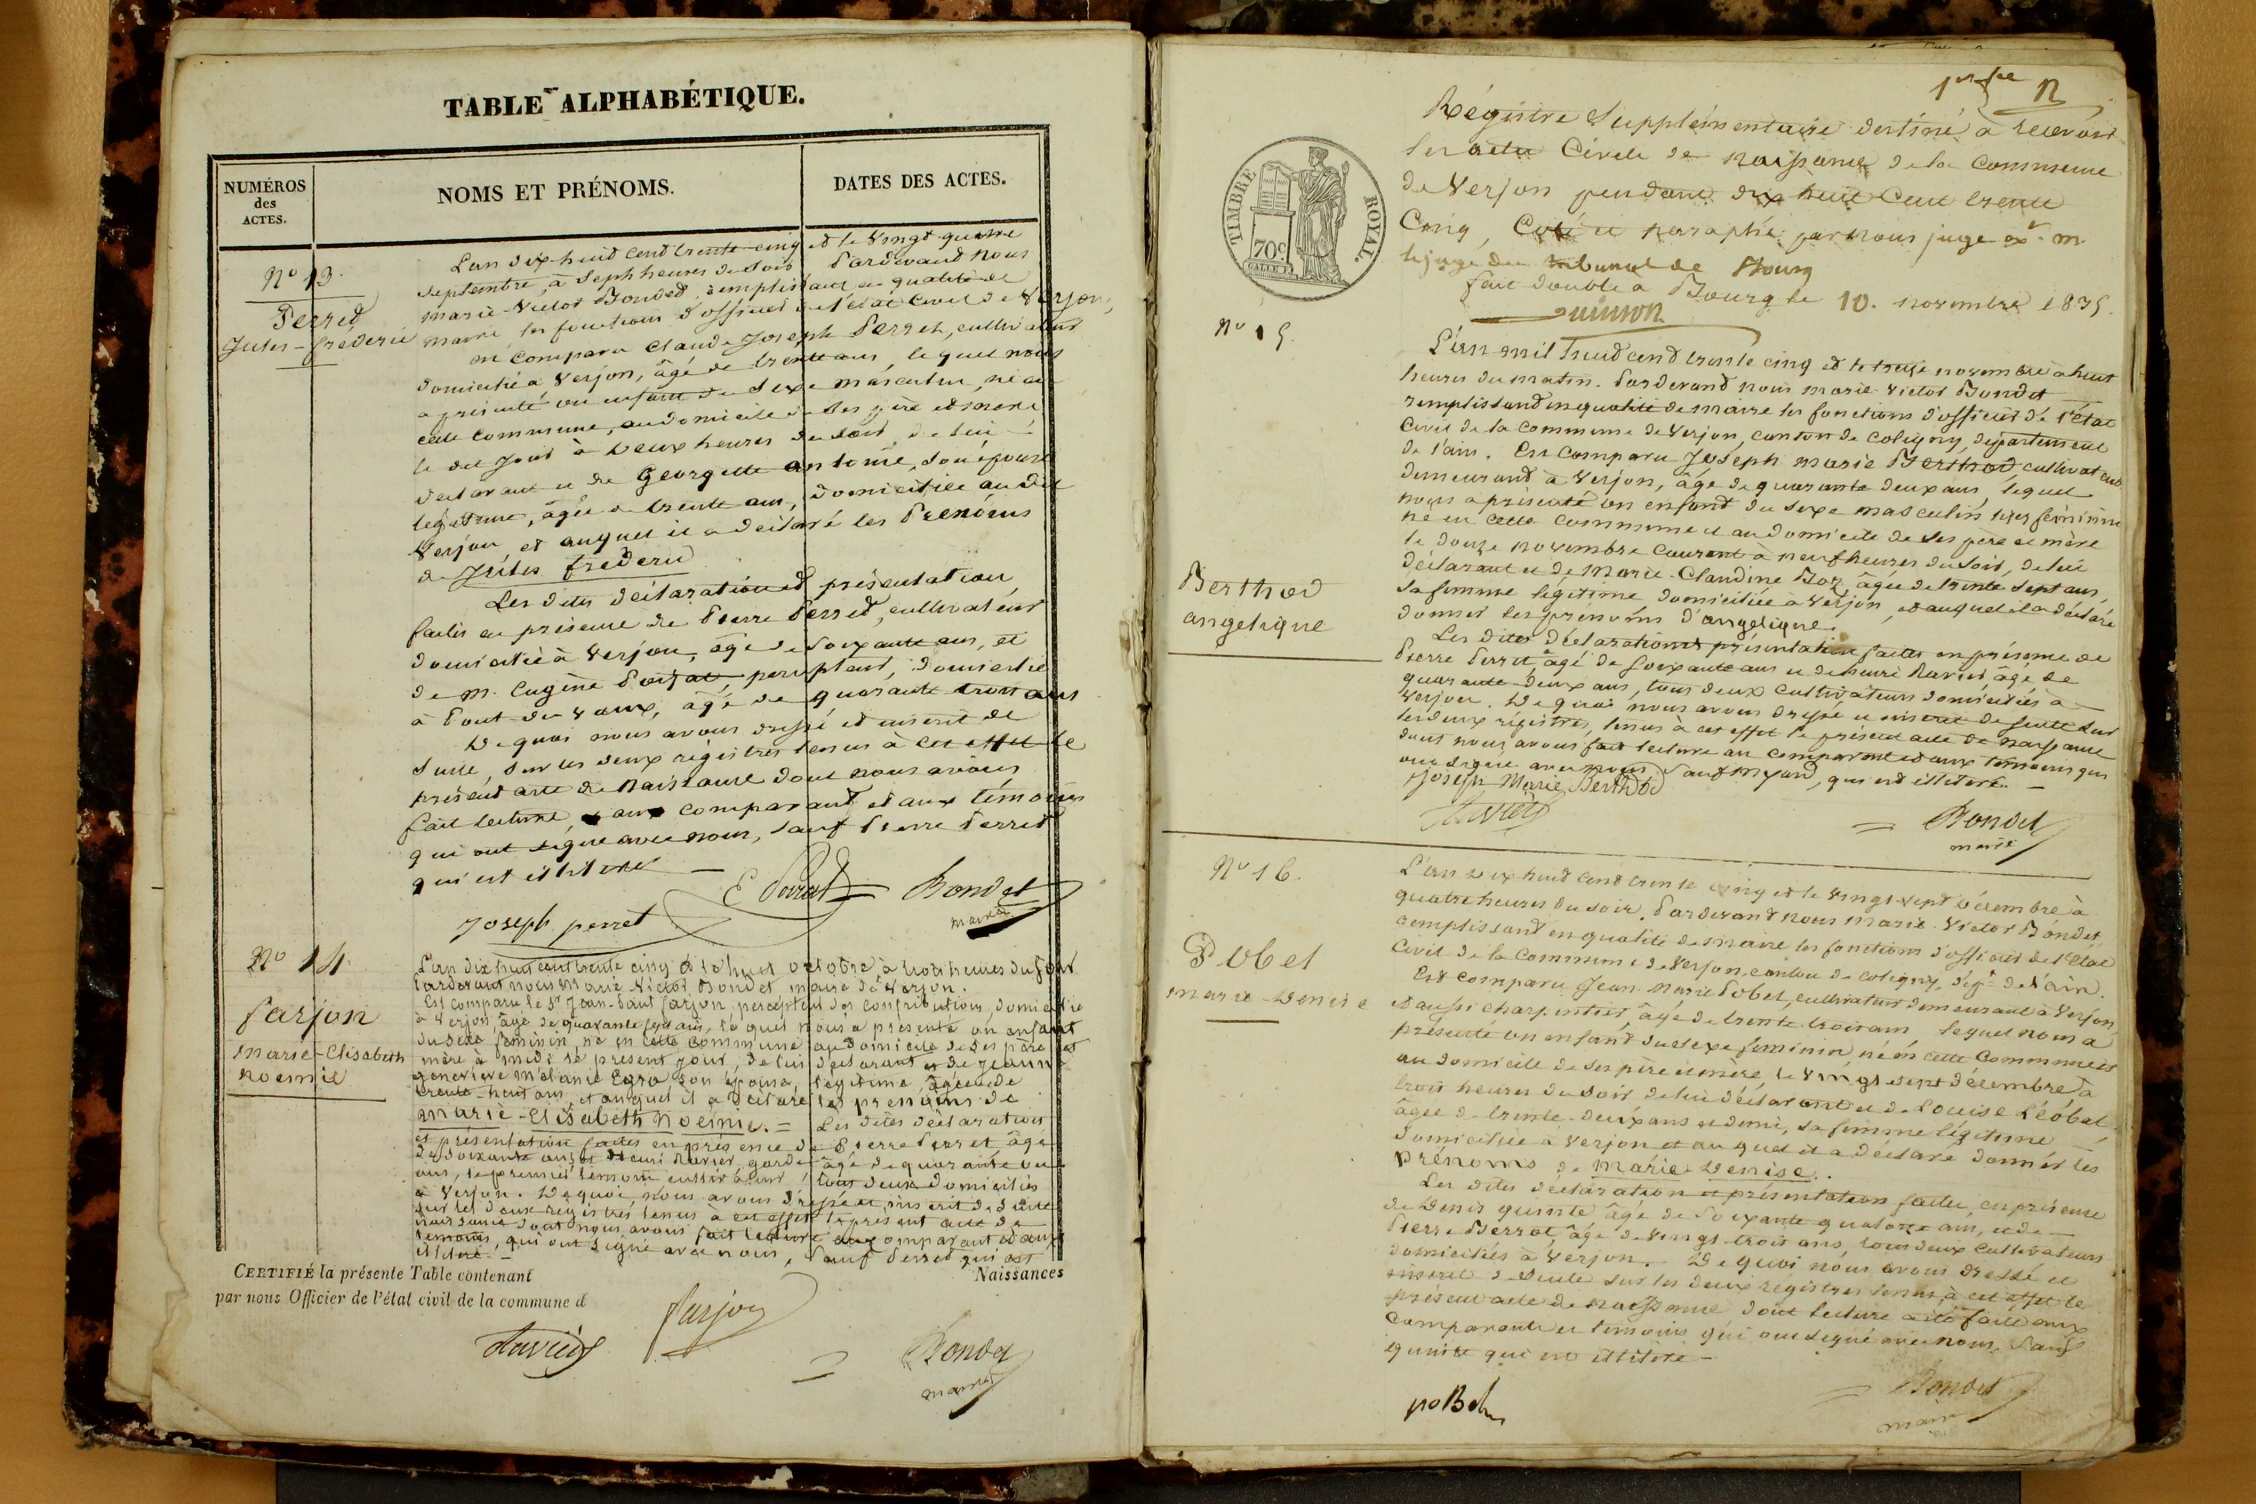 TABLE ALPHABÉTIQUE.
NUMÉROS
des
ACTES.
NOMS ET PRÉNOMS.
DATES DES ACTES.
No 13.
Perred
Jules-frederic
L'an dix-huid cend trente-cinq et le vingt-quatre
septembre, à seph heures du soir Pardevand nous
marie-Victor Bonded, remplissand en qualité de
maire les fonctions d'officier de l'état civil de Verjon,
est comparu Claude Joseph Perret, cultivateur
domicilié à Verjon, âgé de trente ans, lequel nous
a présenté un enfant du sexe masculin, né en
cette commune, au domicile de ses père et mère
le dit jour à deux heures du soir, de lui
déclarant et de Georgette antoine, son épouse
légitime, âgée de trente ans, domiciliée au dit
Verjon, et auquel il a déclaré les Prénoms
de Jules frederic
Les dites déclaration et présentation,
faites en présence de Pierre Perred, cultivateur
domicilié à Verjon, âgé de soixante ans, et
de m. Eugène Poisat, percepteur, domicilié
à Pont-de-vaux, âgé de quarante trois ans
De quoi nous avons dressé et inscrit de
suite, sur les deux régistres tenus à cet effet le
présent acte de Naissance dont nous avons
fait lecture, aux comparant et aux témoins
qui ont signé avec nous, sauf Pierre Perred
qui est illiteré
Joseph perret
Bondet
maire
No 14
farjon
marie-Elisabeth
noemie
L'an dix huit cent trente cinq et le huit octobre à trois heures du soir
Pardevant nous Marie-Victor Bondet maire de Verjon.
Est comparu le Sr Jean-Paul farjon, percepteur des contributions, domicilié
à Verjon, âgé de quarante sept ans, lequel nous a présenté un enfant
du sexe féminin, né en cette commune au domicile de ses père et
mère à midi le présent jour, de lui déclarant et de Jeanne
genevieve mélanie son épouse légitime, âgée de
trente-huit ans, et auquel il a déclaré les prénoms de
marie-Elisabeth Noémie. = Les dites déclaration
et présentation faites en présence de Pierre Perret, âgé
de soixante ans, et henri Ravier, garde âgé de quarante un
ans, le premier témoin cultivateur, tous deux domiciliés
à Verjon. De quoi nous avons dressé et inscrit de suite
sur les deux régistres tenus à cet effet le présent acte de
naissance dont nous avons fait lecture aux comparant et aux
témoins, qui ont signé avec nous, sauf Perret qui est
illiteré.
CERTIFIÉ la présente Table contenant
Naissances
par nous Officier de l'état civil de la commune d
Ravier
farjon
Bondet
maire
1er f.lle
n
Régistre Supplémentaire destiné à recevoir
les actes Civils de naissance de la Commune
de Verjon pendant dix huit Cent trente
Cinq, Coté et paraphé par nous juge
le juge du tribunal de Bourg
fait double à Bourg le 10. novembre 1835.
TIMBRE ROYAL.
70c
No 15.
Berthod
angelique
L'an mil huid cend trente cinq et le treize novembre à huit
heures du matin. Pardevand nous marie-Victor Bondet
remplissand en qualité de maire les fonctions d'officier de l'état
Civil de la Commune de Verjon, canton de Coligny, département
de l'ain. Est comparu Joseph marie Berthod cultivateur
demeurand à Verjon, âgé de quarante deux ans, lequel
nous a présenté un enfant du sexe masculin féminin
né en cette Commune et au domicile de ses père et mère
le douze novembre Courant à neuf heures du soir, de lui
déclarant et de Marie-Claudine Boz, âgée de trente sept ans,
sa femme légitime domiciliée à Verjon, et auquel il a déclaré
donner les prénoms d'angelique.
Les dites déclarations présentation faites en présence de
Pierre Perret, âgé de soixante ans et de henri Ravier âgé de
quarante-deux ans, tous deux cultivateurs domiciliés à
Verjon. De quoi nous avons dressé et inscrit de suite sur
les deux régistres, tenus à cet effet le présent acte de naissance
dont nous avons fait lecture au comparant et aux témoins qui
ont signé avec nous sauf qui est illiteré.
Joseph Marie Berthod
Ravier
Bondet
maire
No 16.
Pobel
marie-Denise
L'an dix huid cend trente cinq et le vingt-sept décembre à
quatre heures du soir. Pardevant nous marie-Victor Bondet,
remplissand en qualité de maire les fonctions d'officier de l'état
Civil de la Commune de Verjon, canton de Coligny, dépt de l'ain.
Est comparu Jean-marie Pobel, cultivateur demeurant à Verjon,
et aussi charpentier, âgé de trente-trois ans lequel nous a
présenté un enfant du sexe feminin, né en cette Commune et
au domicile de ses père et mère le vingt sept décembre à
trois heures du soir de lui déclarant et de Louise Léobal
âgée de trente-deux ans et demi, sa femme légitime
domiciliée à Verjon et auquel il a déclaré donner les
Prénoms de marie Denise.
Les dites déclaration et présentation faites en présence
de Denis quinte âgé de soixante quatorze ans, et de
Pierre Berrot, âgé de vingt-trois ans, tous deux cultivateurs
domiciliés à Verjon. De quoi nous avons dressé et
inscrit de suite sur les deux régistres tenus à cet effet le
présent acte de naissance dont lecture a été faite aux
comparants et témoins qui ont signé avec nous, sauf
quinte qui est illiteré
poBel
Bondet
maire